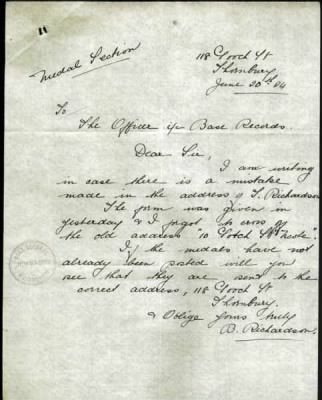 11
Medal Section
118 Gooch St
Thornbury
June 20th 04
To
The Officer i/c Base Records.
Dear Sir,
I am writing
in case there is a mistake
made in the address of T. Richardson
The form was given in
yesterday & I forgot to cross off
the old address "10 Clotch St
If the medals have not
already been posted will you
see that they are sent to the
correct address, 118 Gooch St
Thornbury.
& Oblige yours truly
B. Richardson.